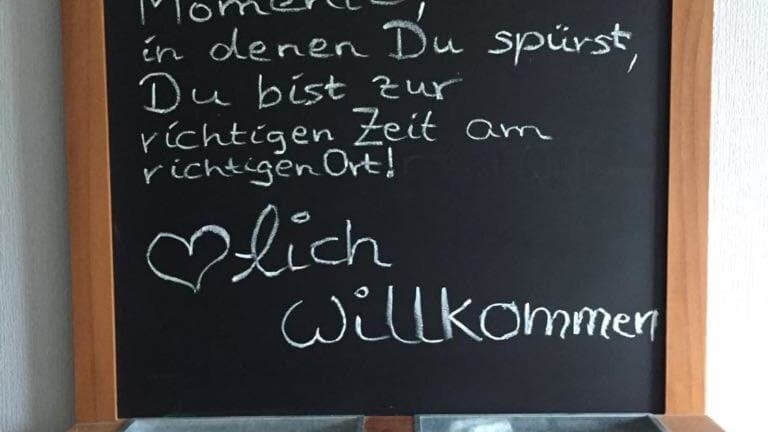 Momente,
in denen Du spürst,
Du bist zur
richtigen Zeit am
richtigen Ort!
♡lich
willkommen